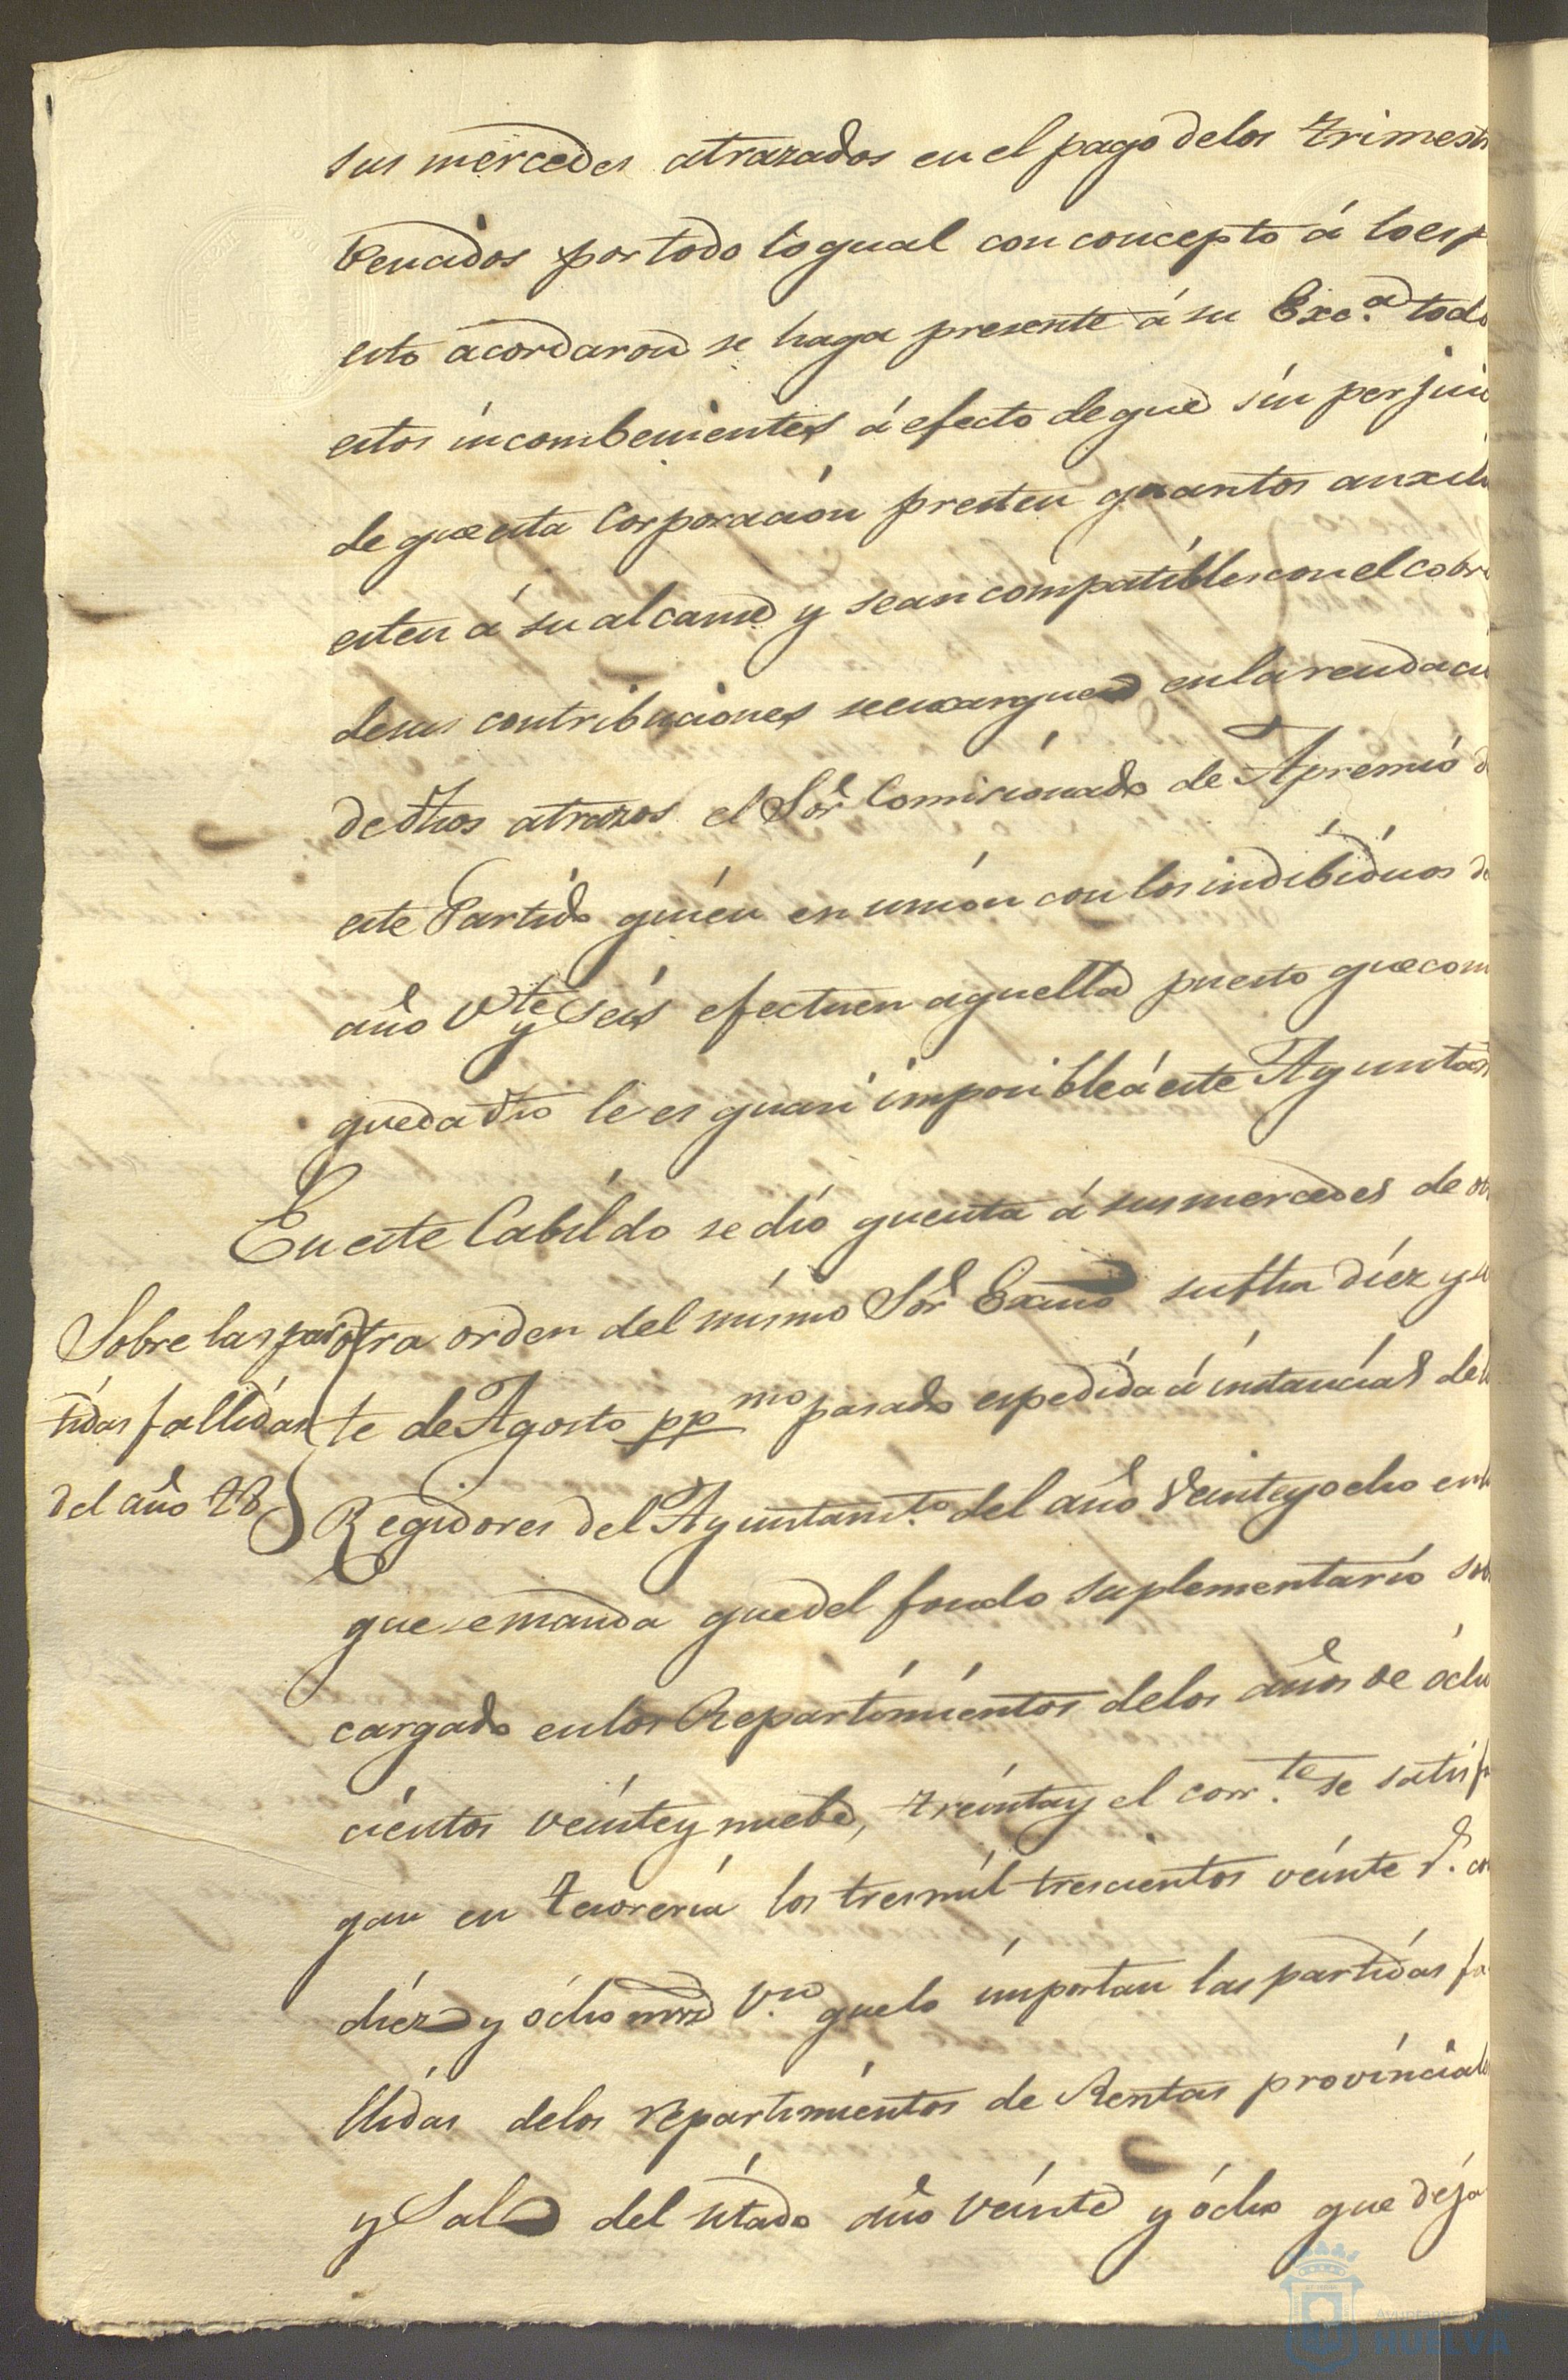 sus mercedes atrazados en el pago delos trimest
bencidos por todo lo qual con concepto á lo esp
esto acordaron se haga presente á su Exc.ª todo
estos incombenientes á efecto de que sin perjuic
de que esta Corporacion presten quantos auxili
esten á su alcanse y sean compatibles con el cobr
desus contribuciones se encarguen en la rendaci
de dhos atrazos el Sor Comicionado de Apremio d
este Partido quién en union con los indibiduos d
año Vte y Seis efectuen aquella puesto que com
queda dho le es quasi imposible á este Ayuntam
En este Cabildo se dió quenta á sus mercedes de
Sobre las par
tidas fallidas
del año 28
otra orden del mismo Sor Exmo su fha diez y si
te de Agosto ppmo pasado espedida á instancias del
Regidores del Ayuntamto del año Veinte y ocho en
que se manda que del fondo suplementario sob
cargado en los Repartimientos delos años de ócho
cientos veinte y nuebe, treinta y el corr.te se satisf
gan en tesoreria los tres mil trescientos veinte r.s con
diez y ócho mrs Vn que lo importan las partidas fa
llidas delos repartimientos de Rentas provinciale
y Sal del sitado año veinte y ócho que deja
HUELVA